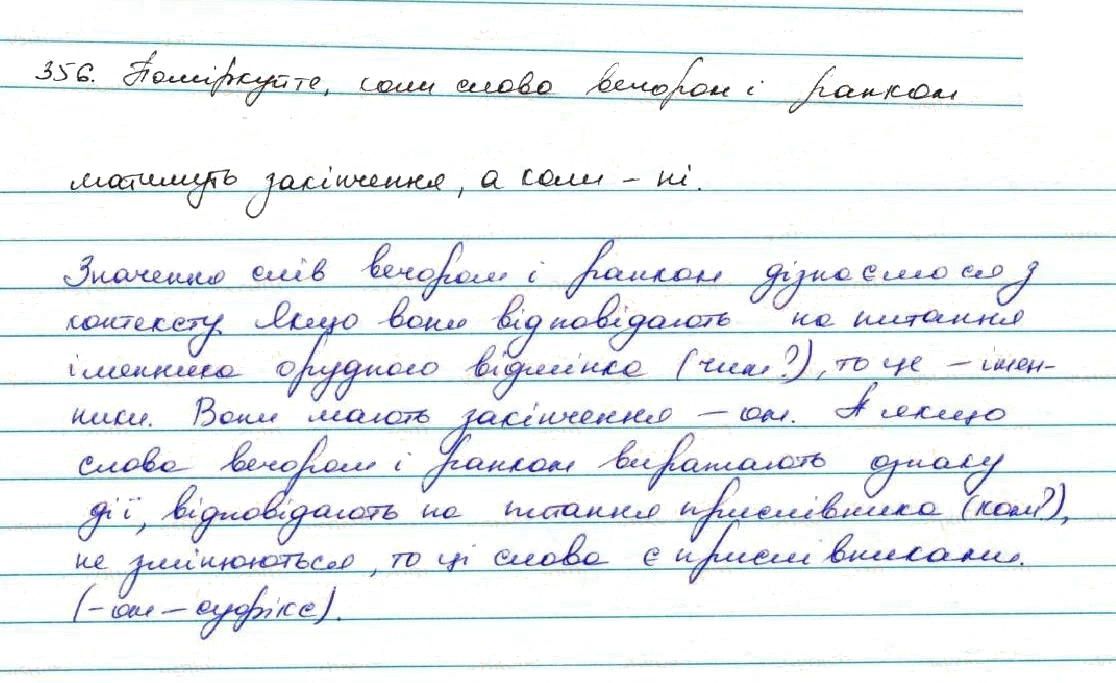 356. Поміркуйте, коли слова вечором і ранком
матимуть закінчення, а коли – ні.
Значення слів вечором і ранком дізнаємося з
контексту. Якщо вони відповідають на питання
іменника орудного відмінка (чим?), то це – імен-
ники. Вони мають закінчення – ом. А якщо
слова вечором і ранком виражають ознаку
дії, відповідають на питання прислівника (коли?),
не змінюються, то ці слова є прислівниками.
(– ом – суфікс).